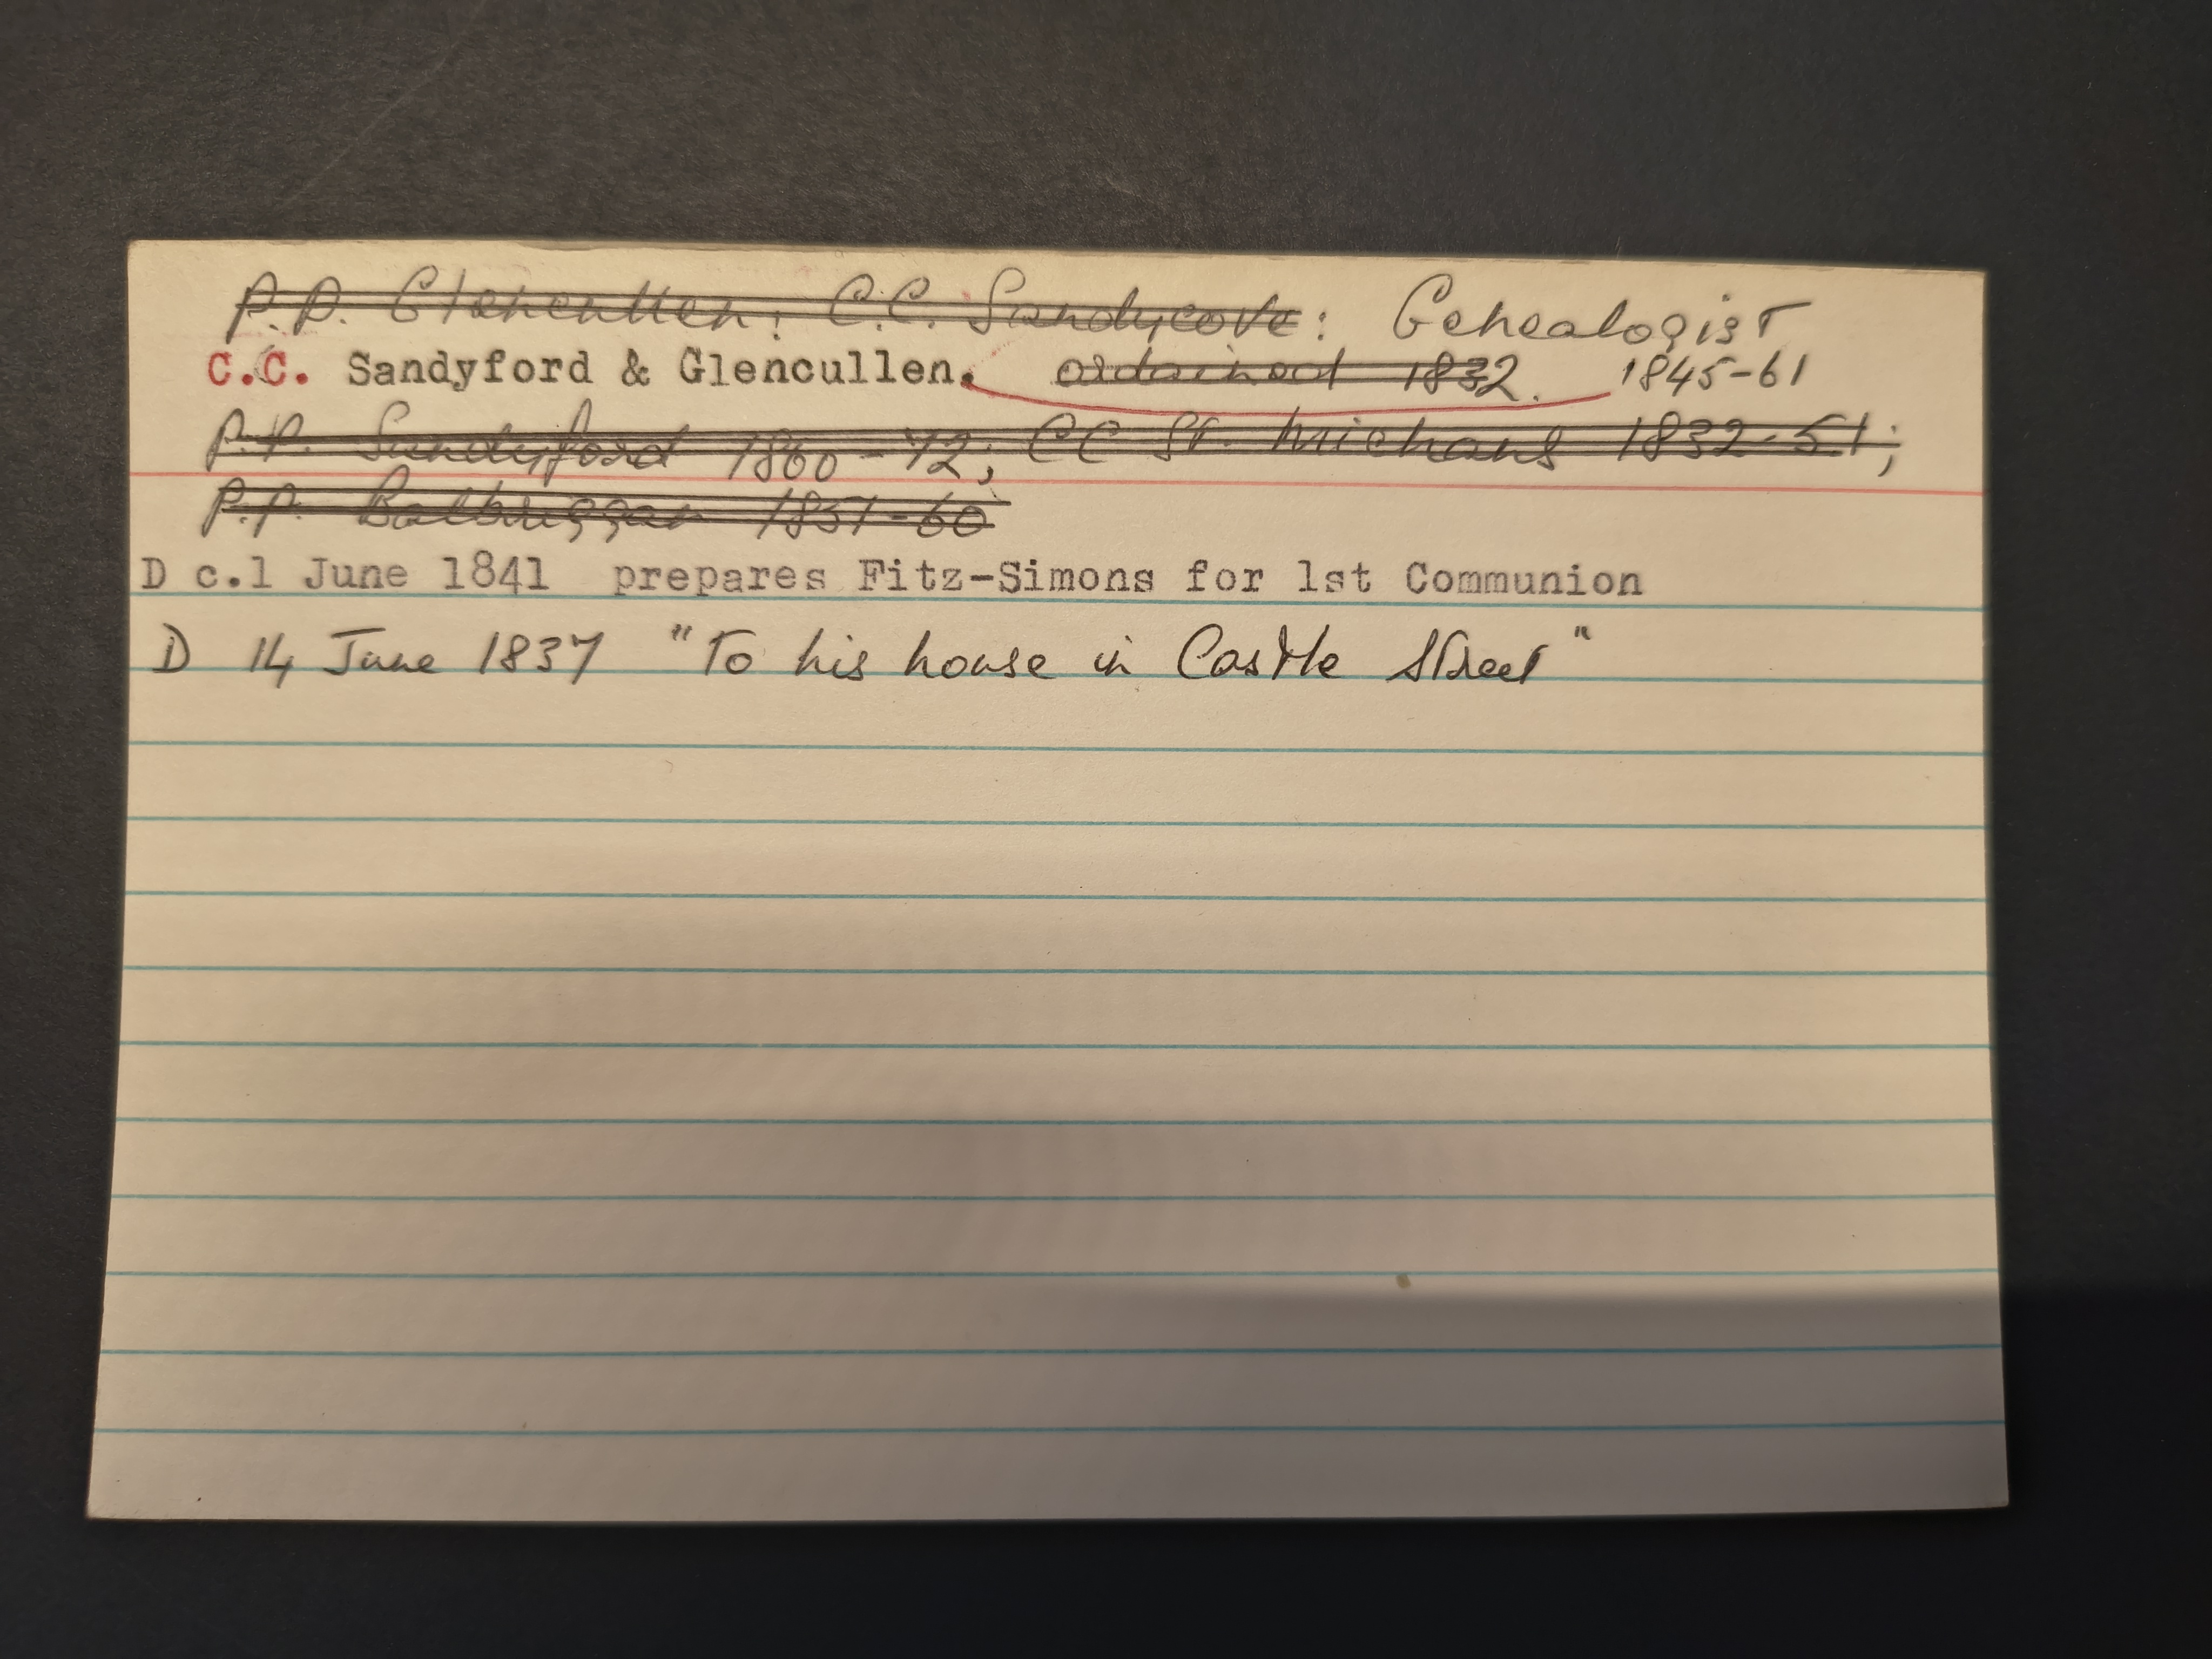 P.P. Glencullen; C.C. Sandycove: Genealogist
C.C. Sandyford & Glencullen. ordained 1832. 1845-61
P.P. Sandyford 1860-72; CC St. Michans 1832-51;
P.P. Balbriggan 1851-60
D c.1 June 1841 prepares Fitz-Simons for 1st Communion
D 14 June 1837 "To his house in Castle Street"